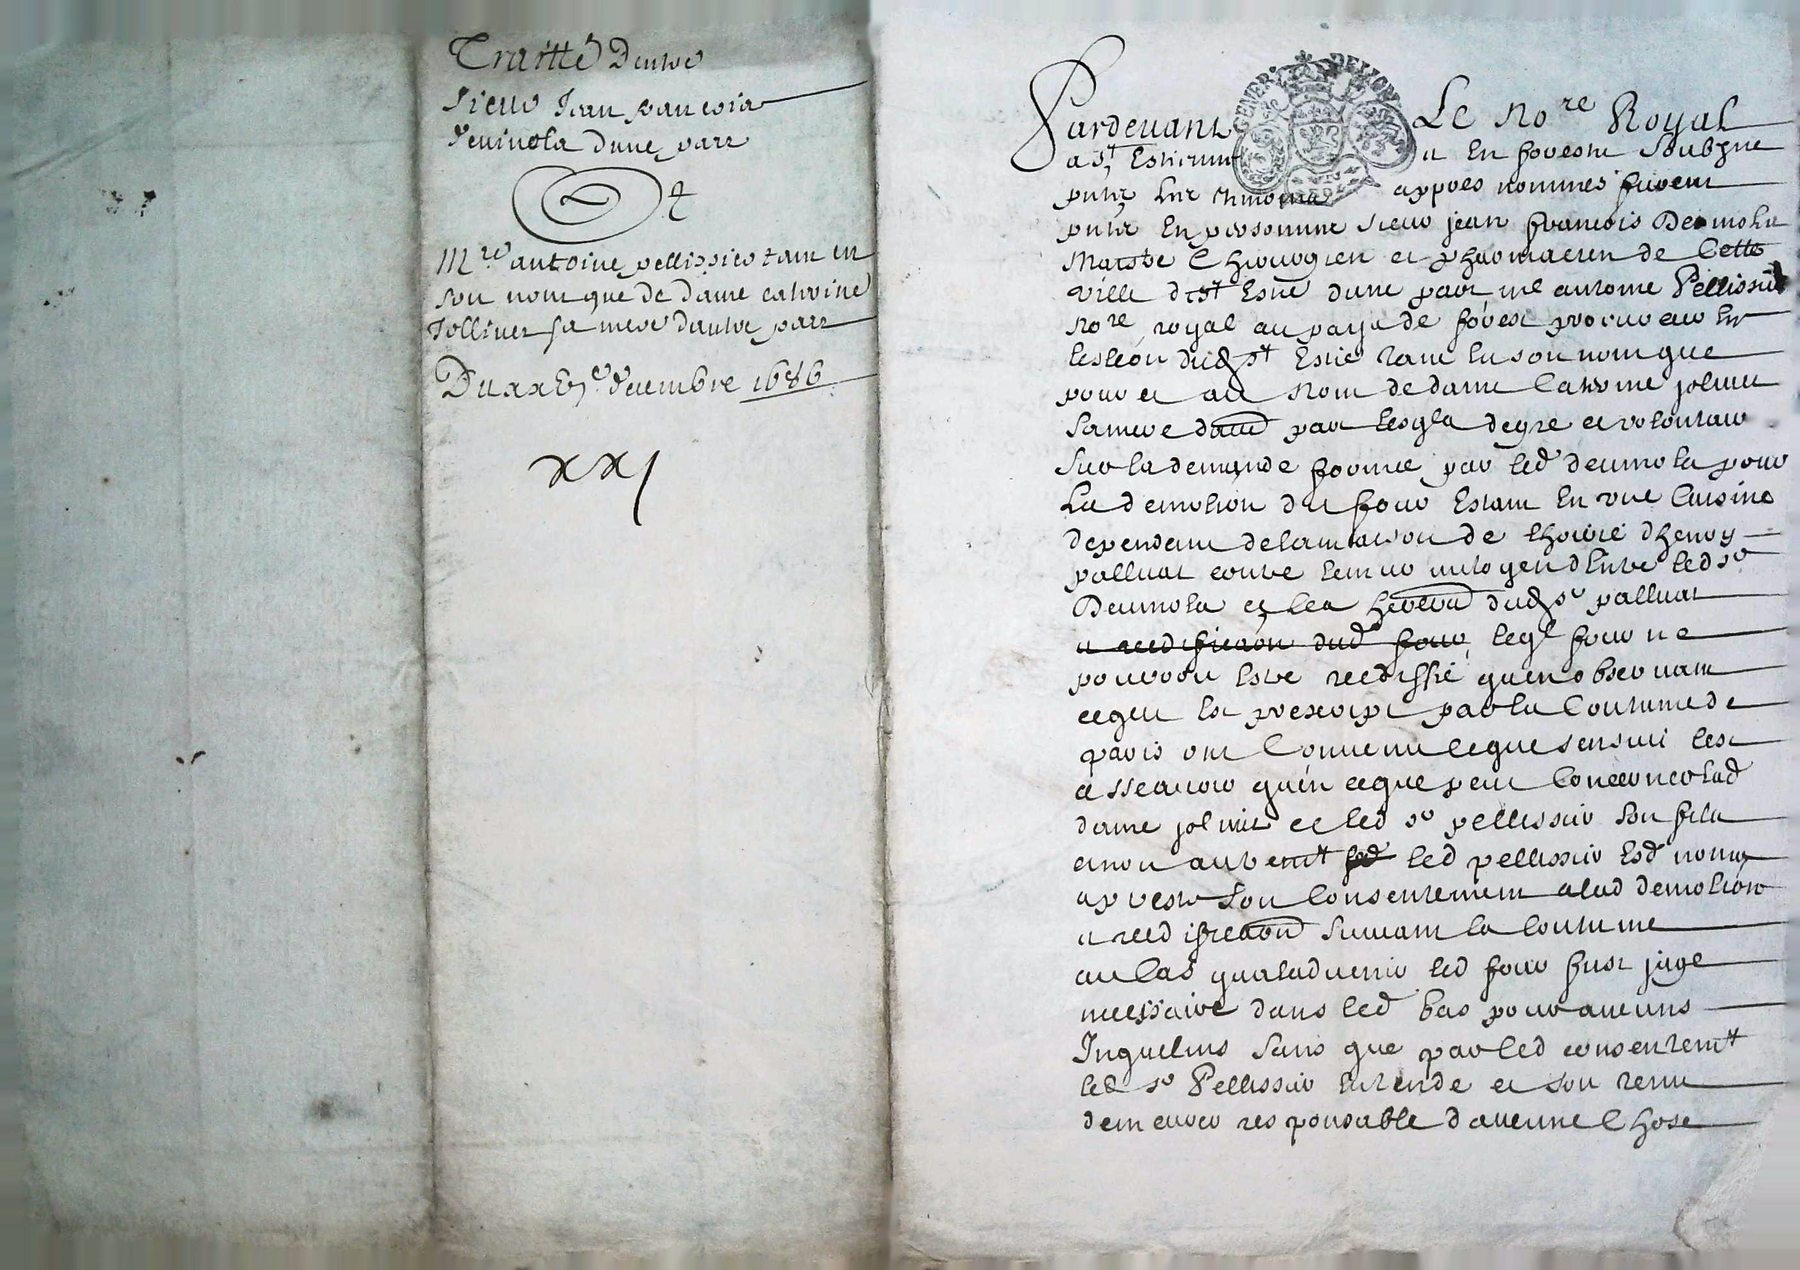 Traitté Dentre
Sieur Jean francois
Deuinola dune part
Et
Mre antoine pellissier tant en
son nom que de dame catrine
Jolliuet sa mere dautre part
Du xxe decembre 1686
xxj
GENER DE LION
Pardeuant Le nore Royal
a st Estienne en forestz soubzne
pntz les apres nommes furent
pntz En personne sieur jean francois Deuinola
Maistre Chirurgien et pharmacien de Cette
ville de st Esne dune part, me antoine Pellissier
Nore royal au pays de forest procureur en
lesleon dud st Esne tant en son nom que
pour et au Nom de dame Catrine joliuet
sa mere dautre part lesqls de gre et volontaire
sur la demande formee par led deuinola pour
La demolion du four Estant En une Cuisine
dependant de la maison de lhoirie dhenry
palluat contre le mur mitoyen dEntre led sr
Deuinola et les heritiers dud sr palluat
a reedificaon dud four, leql four ne
pouuoit Estre reediffié quen obseruant
ce que Est prescript par la Coutume de
paris ont Conuenu ce que sensuit Est
a sscauoir quen ce que peut Concerner lad
dame joliuet et led sr pellissier son fils
et non autremt led pellissier esd noms
a preste son Consentement a lad demolion
a reedificaon suiuant la coutume
au Cas qual aduenir led four fust juge
necessaire dans led bas pour aucuns
Inquelins sans que par led consentemt
led sr Pellissier Entende et soit tenu
demeurer responsable daucune Chose